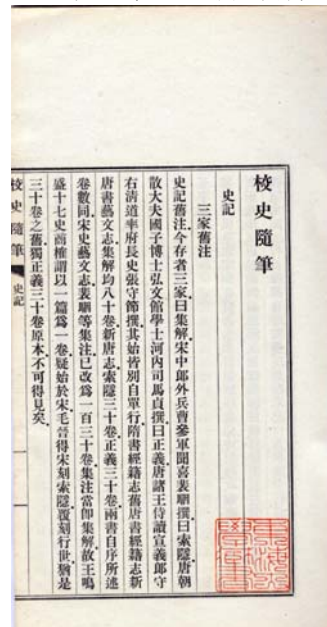 校史隨筆
史記
三家舊注
史記舊注今存者三家曰集解宋中郎外兵曹參軍聞喜裴駰撰曰索隱唐朝
散大夫國子博士弘文館學士河內司馬貞撰曰正義唐諸王侍讀宣義郎守
右清道率府長史張守節撰其始皆別自單行隋書經籍志舊唐書經籍志新
唐書藝文志集解均八十卷新唐志索隱三十卷正義三十卷兩書自序所述
卷數同宋史藝文志裴駰等集注已改爲一百三十卷集注當即集解故王鳴
盛十七史商榷謂以一篇爲一卷疑始於宋毛晉得宋刻索隱覆刻行世猶是
三十卷之舊獨正義三十卷原本不可得見矣
校史隨筆 史記